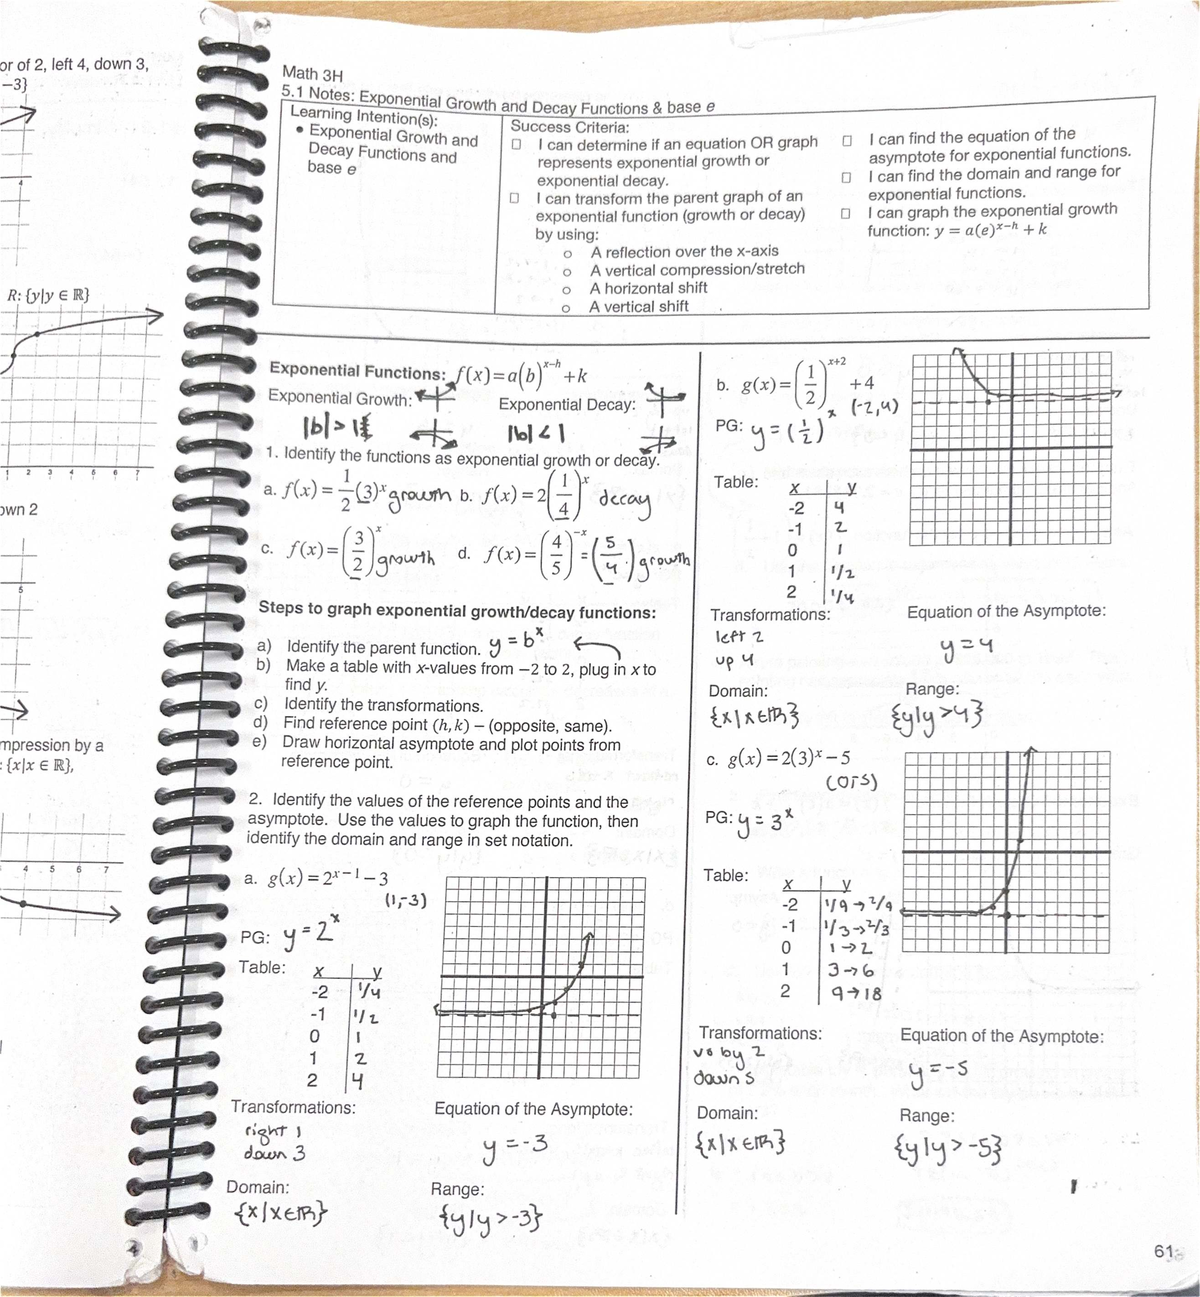 or of 2, left 4, down 3,
−3}
4
R: {y|y ∈ ℝ}
1 2 3 4 5 6 7
own 2
5
mpression by a
: {x|x ∈ ℝ},
4 5 6 7
Math 3H
5.1 Notes: Exponential Growth and Decay Functions & base e
Learning Intention(s):
• Exponential Growth and
Decay Functions and
base e
Success Criteria:
☐ I can determine if an equation OR graph
represents exponential growth or
exponential decay.
☐ I can transform the parent graph of an
exponential function (growth or decay)
by using:
o A reflection over the x-axis
o A vertical compression/stretch
o A horizontal shift
o A vertical shift
☐ I can find the equation of the
asymptote for exponential functions.
☐ I can find the domain and range for
exponential functions.
☐ I can graph the exponential growth
function: y = a(e)^(x−h) + k
Exponential Functions: f(x)=a(b)^(x−h)+k
Exponential Growth:
|b|>1
Exponential Decay:
|b|<1
1. Identify the functions as exponential growth or decay.
a. f(x) = 1/2(3)^x growth b. f(x) = 2(1/4)^x decay
c. f(x) = (3/2)^x growth d. f(x) = (4/5)^(−x) = (5/4) growth
Steps to graph exponential growth/decay functions:
a) Identify the parent function. y = b^x
b) Make a table with x-values from −2 to 2, plug in x to
find y.
c) Identify the transformations.
d) Find reference point (h, k) – (opposite, same).
e) Draw horizontal asymptote and plot points from
reference point.
2. Identify the values of the reference points and the
asymptote. Use the values to graph the function, then
identify the domain and range in set notation.
a. g(x) = 2^(x−1) − 3
(1,-3)
PG: y = 2^x
Table: x y
-2 1/4
-1 1/2
0 1
1 2
2 4
Transformations:
right 1
down 3
Equation of the Asymptote:
y = -3
Domain:
{x|x∈ℝ}
Range:
{y|y > -3}
b. g(x) = (1/2)^(x+2) + 4
(-2,4)
PG: y = (1/2)^x
Table:
x y
-2 4
-1 2
0 1
1 1/2
2 1/4
Transformations:
left 2
up 4
Equation of the Asymptote:
y = 4
Domain:
{x|x∈ℝ}
Range:
{y|y>4}
c. g(x) = 2(3)^x − 5
PG: y = 3^x
Table:
x y
-2 1/9 → 2/9
-1 1/3 → 2/3
0 1 → 2
1 3 → 6
2 9 → 18
Transformations:
vs by 2
down 5
Equation of the Asymptote:
y = -5
Domain:
{x|x∈ℝ}
Range:
{y|y > -5}
61